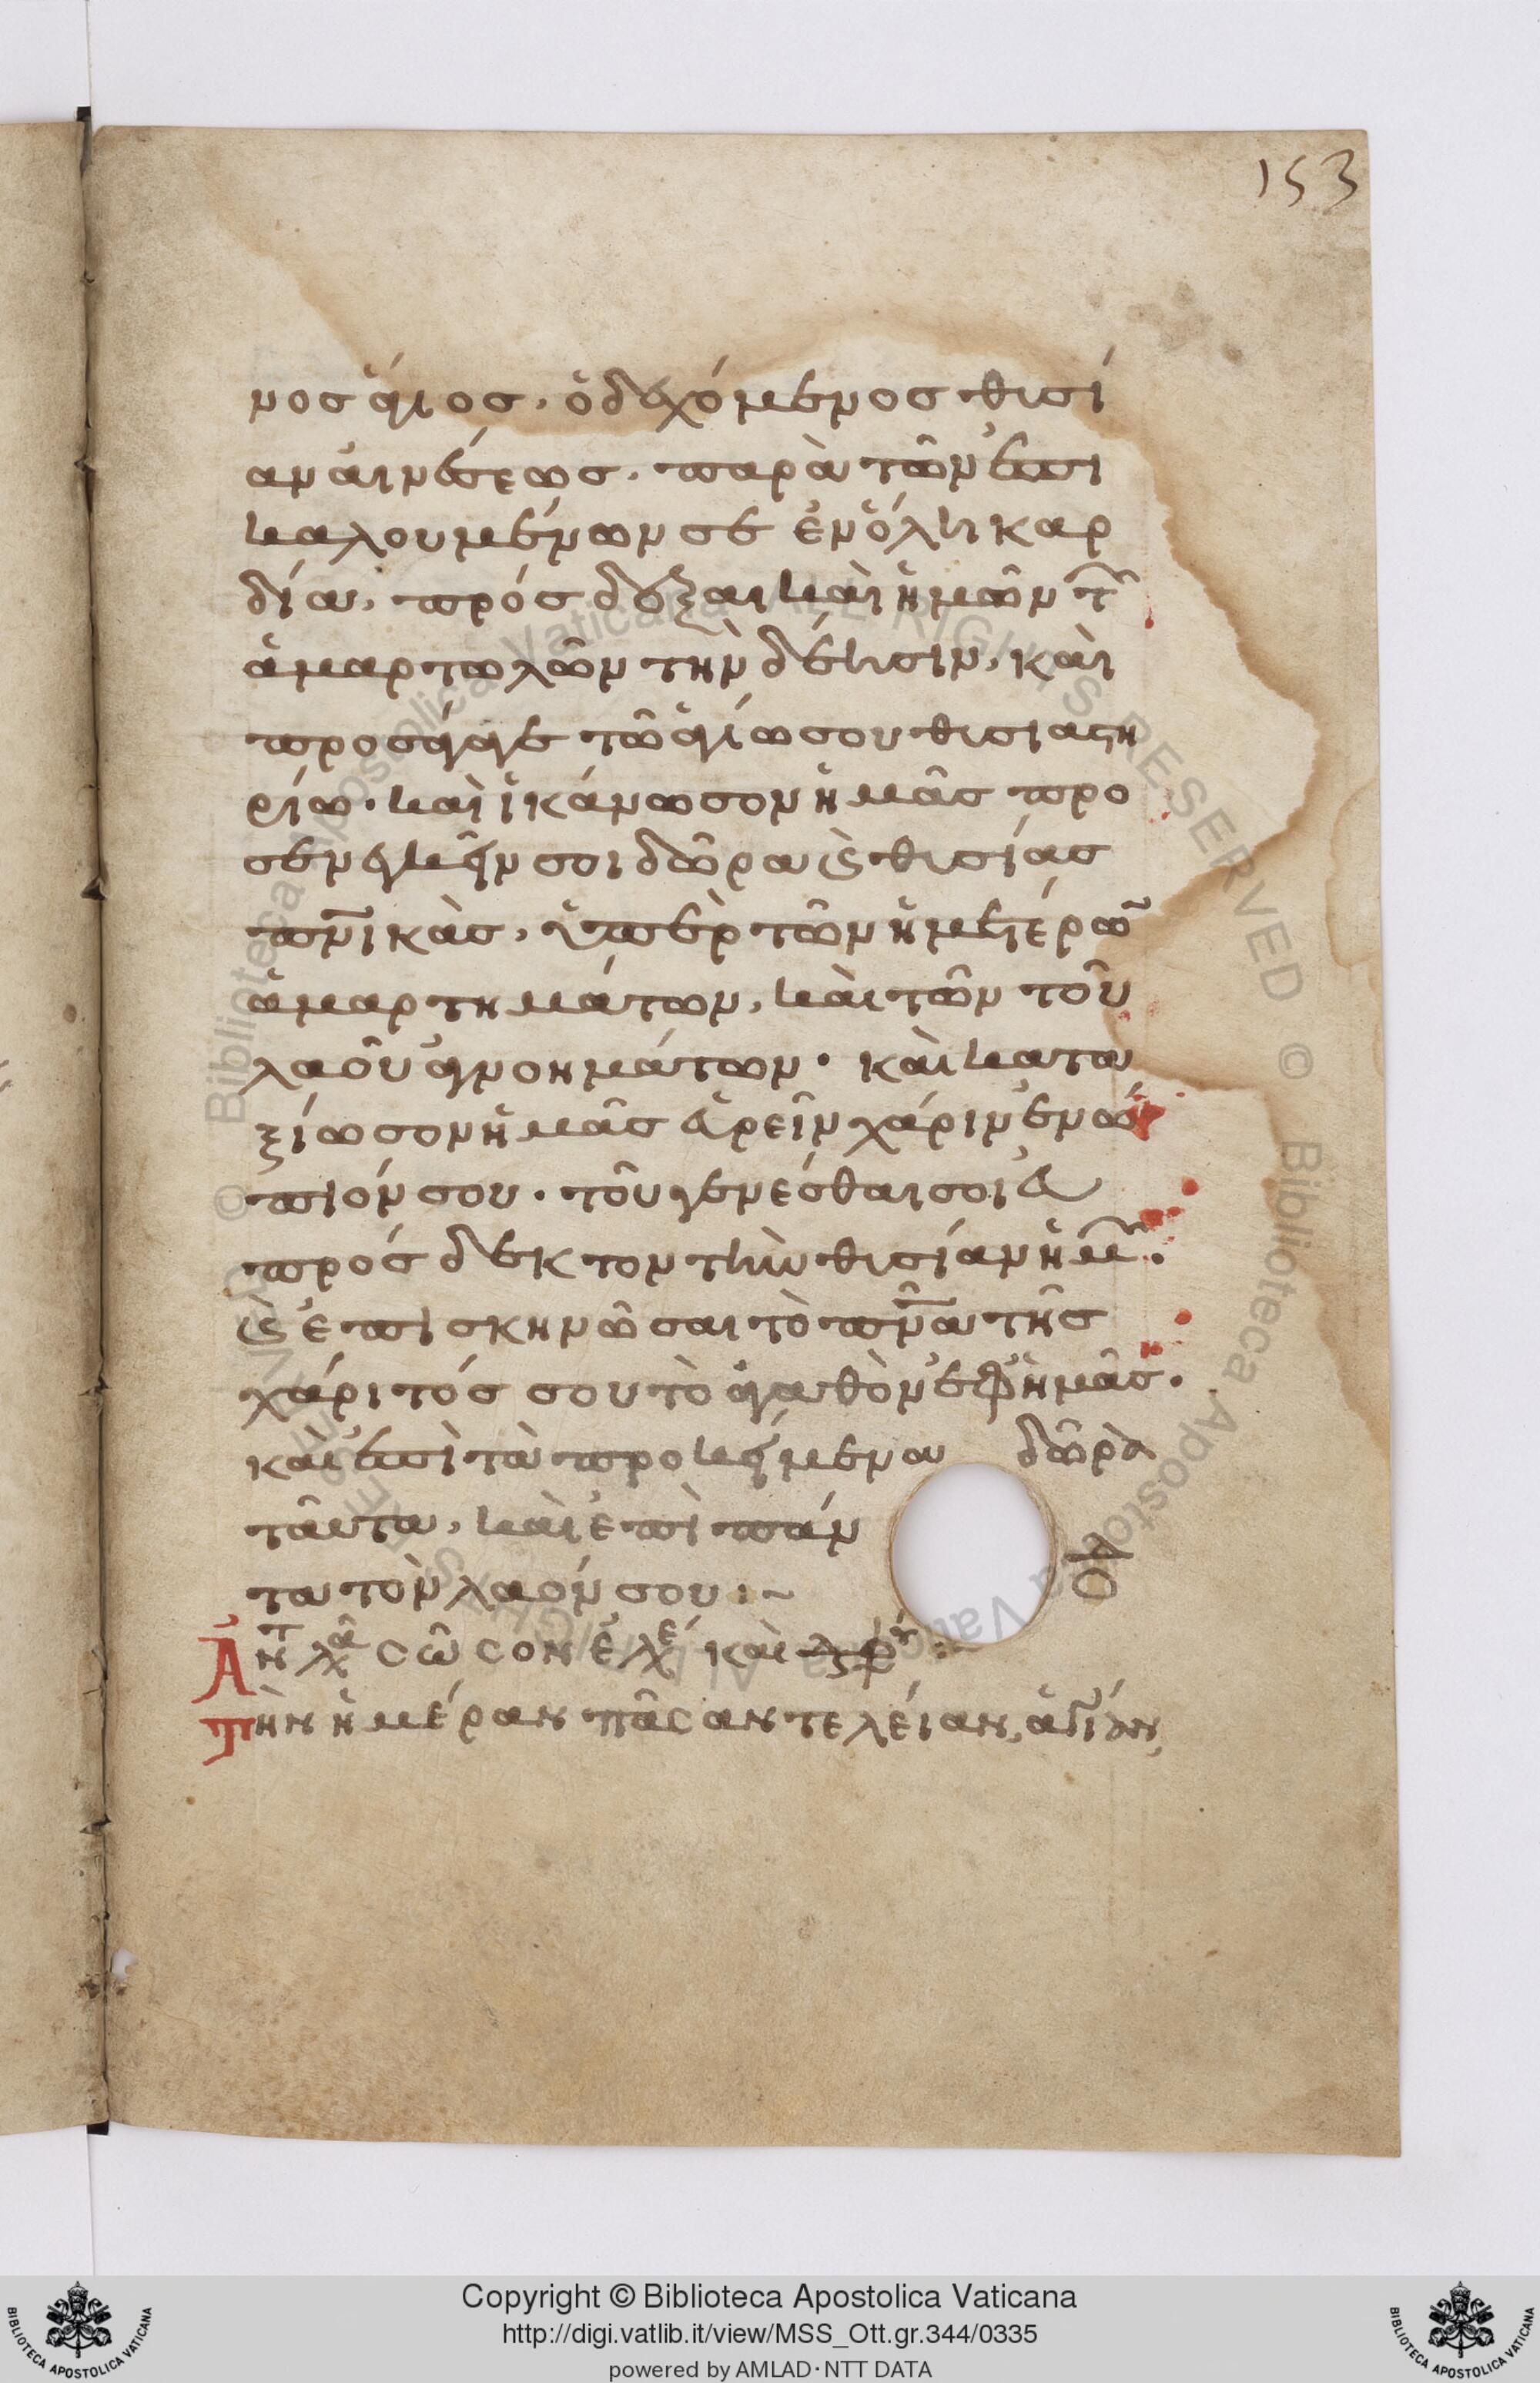 153
νος ἅγιος· ὁ δεχόμενος θισί
αν αἰνέσεως· παρὰ τῶν ἐπι
καλουμένων σε ἐν ὅλη καρ
δία, πρόσδεξαι καὶ ἡμῶν τ͂
ἁμαρτωλῶν τὴν δέησιν, καὶ
προσάγαγε τῶ ἁγίω σου θισιαστη
ρίω· καὶ ἱκάνωσον ἡμᾶς προ
σενεγκεῖν σοι δῶρα ϗ θισίας
πν̅ικὰς, ὑπὲρ τῶν ἡμετέρῶ
ἁμαρτημάτων, καὶ τῶν τοῦ
λαοῦ ἀγνοημάτων· καὶ κατα
ξίωσον ἡμᾶς εὑρεῖν χάριν ἐνώ
πιόν σου· τοῦ γενέσθαι σοι εὐ
πρόσδεκτον τὴν θισίαν ἡμ͂·
ϗ ἐπισκηνῶσαι τὸ πν̅α τῆς
χάριτός σου τὸ ἀγαθὸν ἐφ' ἡμᾶς·
καὶ ἐπὶ τὰ προκείμενα δῶρα
ταῦτα, καὶ ἐπὶ πάν
τα τὸν λαόν σου :~
Ἀντλα σῶσον ἐλε καὶ
Τὴν ἡμέραν πᾶσαν τελείαν, ἁγίαν,
Copyright © Biblioteca Apostolica Vaticana
http://digi.vatlib.it/view/MSS_Ott.gr.344/0335
powered by AMLAD·NTT DATA